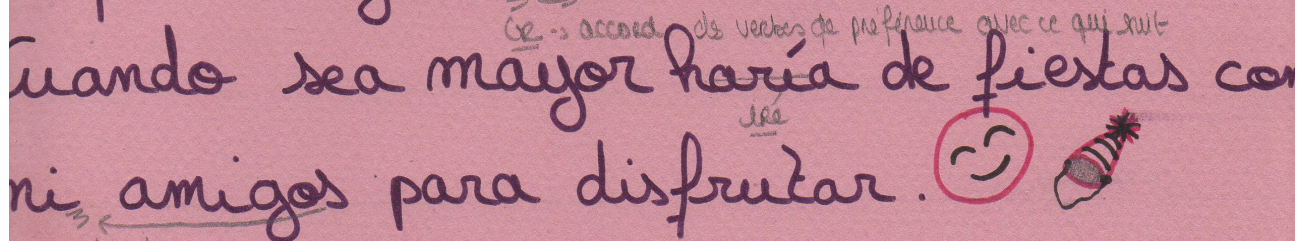 Ge -> accord de verbes de préférence avec ce qui suit
Cuando sea mayor haría de fiestas con
iré
mi amigos para disfrutar.
s